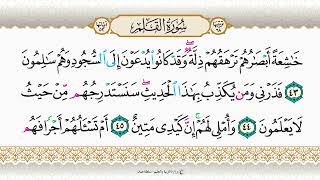 سُورَةُ القَلَمِ
خَٰشِعَةً أَبْصَٰرُهُمْ تَرْهَقُهُمْ ذِلَّةٌۖ وَقَدْ كَانُوا۟ يُدْعَوْنَ إِلَى ٱلسُّجُودِ وَهُمْ سَٰلِمُونَ
٤٣ فَذَرْنِى وَمَن يُكَذِّبُ بِهَٰذَا ٱلْحَدِيثِۖ سَنَسْتَدْرِجُهُم مِّنْ حَيْثُ
لَا يَعْلَمُونَ ٤٤ وَأُمْلِى لَهُمْۚ إِنَّ كَيْدِى مَتِينٌ ٤٥ أَمْ تَسْـَٔلُهُمْ أَجْرًا فَهُم